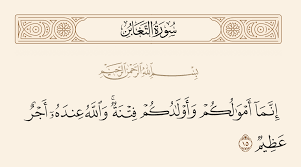 سُورَةُ التَّغَابُنِ
بِسْمِ اللَّهِ الرَّحْمَٰنِ الرَّحِيمِ
إِنَّمَا أَمْوَالُكُمْ وَأَوْلَادُكُمْ فِتْنَةٌ ۚ وَاللَّهُ عِندَهُ أَجْرٌ
عَظِيمٌ ١٥